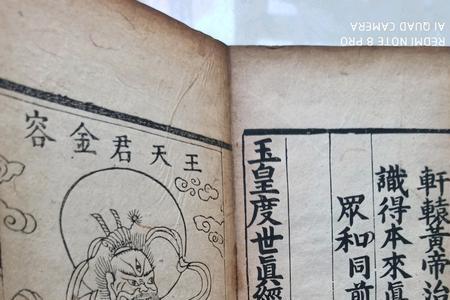 軒轅黃帝治
識得本來眞
眾和同前
玉皇度世眞經
王天君金容
REDMI NOTE 8 PRO
AI QUAD CAMERA